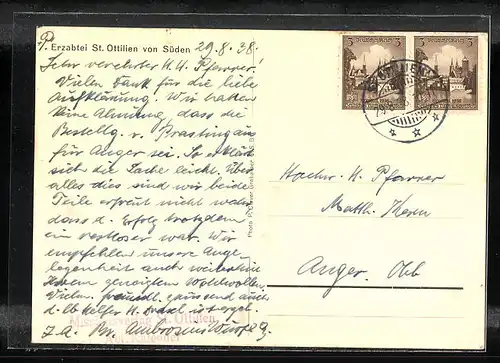 P. Erzabtei St. Ottilien von Süden 29.8.38.
Sehr verehrter H. H. Pfarrer!
Vielen Dank für die liebe
Aufklärung. Wir hatten
keine Ahnung, dass die
Bestellg. v. Prasting aus
für Anger sei. So erklärt
sich die Sache leicht. Über
alles dies sind wir beide
Teile erfreut nicht wahr,
dass d. Erfolg trotzdem
ein restloser war. Wir
empfehlen unsere Ange-
legenheit auch weiterhin
Ihrem geneigten Wohlwollen.
Vielen freundl. grüssend auch
d. lb Helfer H.
I. A. Br. Ambrosius
Missionsverlag St. Ottilien,
Hochw. H. Pfarrer
Matth. Kern
Anger. Obb